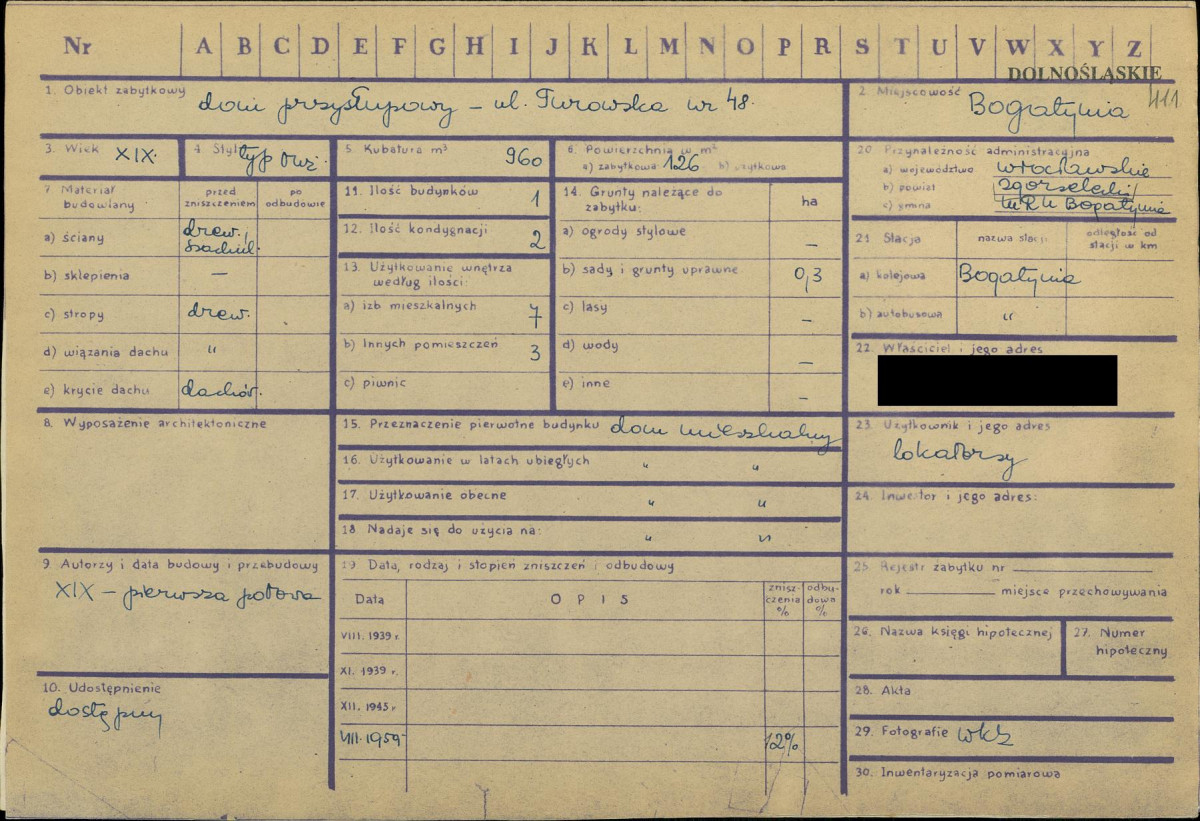 Nr A B C D E F G H I J K L M N O P R S T U V W X Y Z
DOLNOŚLĄSKIE
411
1. Obiekt zabytkowy dom przysłupowy – ul. Turowska nr 48.
2. Miejscowość Bogatynia
3. Wiek XIX.
4. Styl typ
5. Kubatura m³ 960
6. Powierzchnia w m²
a) zabytkowa 126 b) użytkowa
7. Materiał budowlany
przed zniszczeniem
po odbudowie
a) ściany drew.,
b) sklepienia –
c) stropy drew.
d) wiązania dachu "
e) krycie dachu dachów.
8. Wyposażenie architektoniczne
9. Autorzy i data budowy i przebudowy
XIX – pierwsza połowa
10. Udostępnienie
dostępny
11. Ilość budynków 1
12. Ilość kondygnacji 2
13. Użytkowanie wnętrza
według ilości:
a) izb mieszkalnych 7
b) Innych pomieszczeń 3
c) piwnic
14. Grunty należące do
zabytku: ha
a) ogrody stylowe –
b) sady i grunty uprawne 0,3
c) lasy –
d) wody –
e) inne –
15. Przeznaczenie pierwotne budynku dom mieszkalny
16. Użytkowanie w latach ubiegłych " "
17. Użytkowanie obecne " "
18. Nadaje się do użycia na: " "
19. Data, rodzaj i stopień zniszczeń i odbudowy
Data OPIS zniszczenia % odbudowa %
VIII. 1939 r.
XI. 1939 r.
XII. 1945 r
VIII. 1959 12%
20. Przynależność administracyjna
a) województwo wrocławskie
b) powiat zgorzelecki
c) gmina MRN Bogatynia
21. Stacja nazwa stacji odległość od stacji w km
a) kolejowa Bogatynia
b) autobusowa "
22. Właściciel i jego adres
23. Użytkownik i jego adres
lokatorzy
24. Inwestor i jego adres:
25. Rejestr zabytku nr
rok miejsce przechowywania
26. Nazwa księgi hipotecznej
27. Numer
hipoteczny
28. Akta
29. Fotografie WKZ
30. Inwentaryzacja pomiarowa